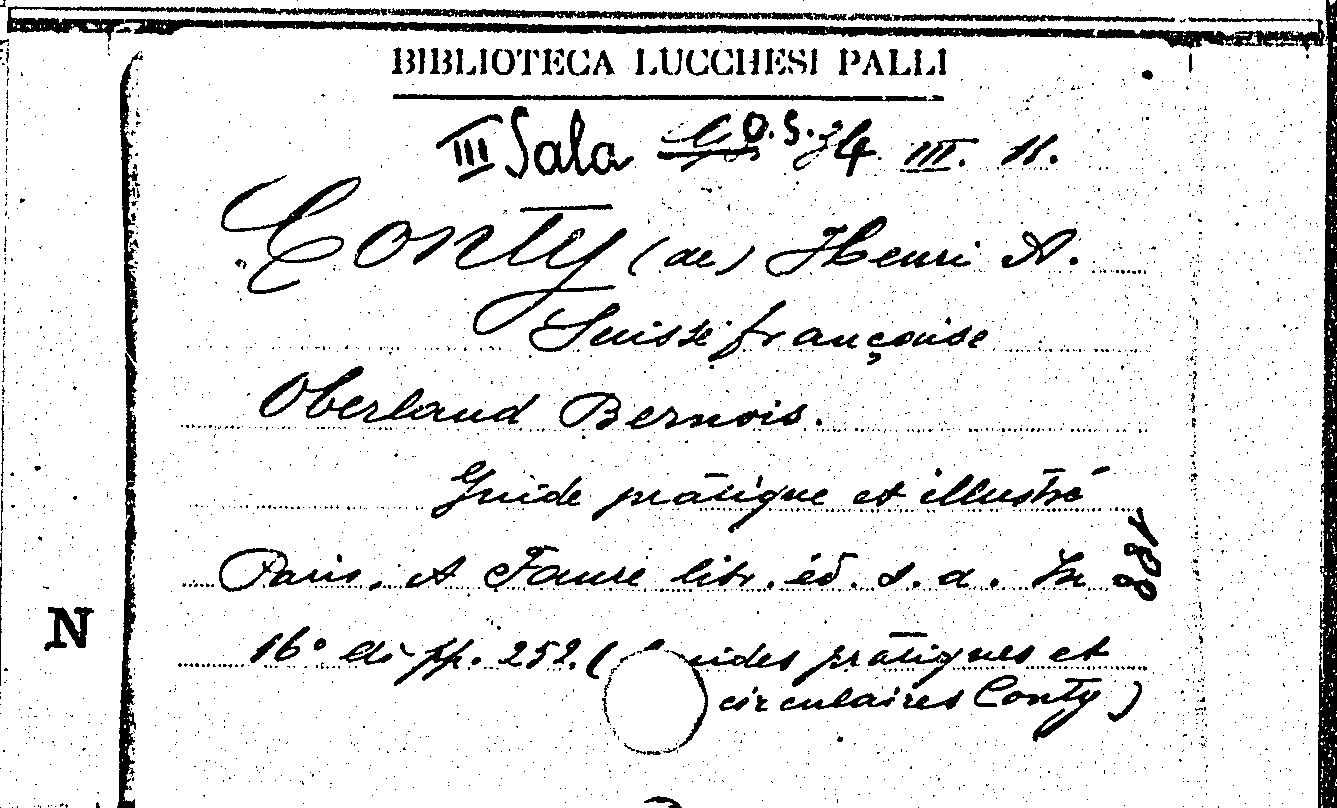 BIBLIOTECA LUCCHESI PALLI
III Sala O.S. 34 III. 11.
Conty (de) Henri A.
Suisse françoise
Oberland Bernois.
Guide pratique et illustré
Paris, A Faure libr. éd. s. a. In
16° di pp. 252. ( uides pratiques et
circulaires Conty)
188
N